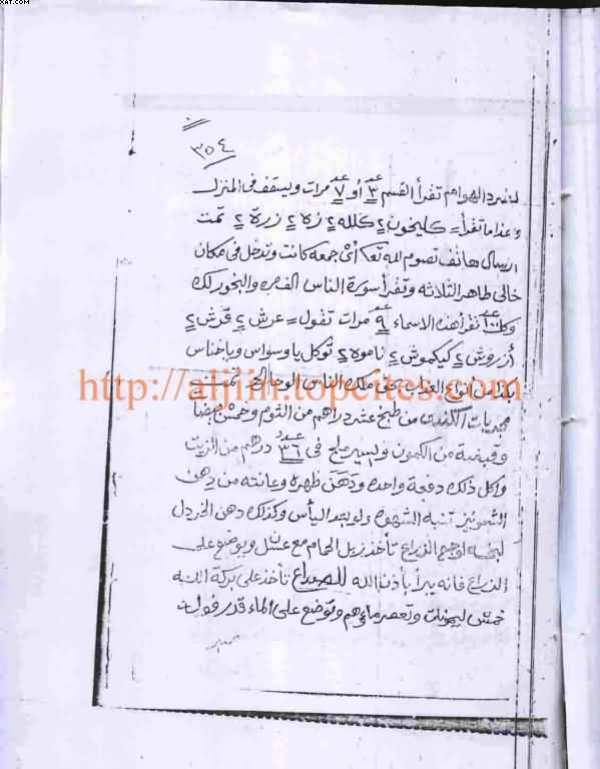 xAT.COM
٣٥٤
لطرد الهوام تقرأ القسم عدد ٣ أو عدد ٧ مرات ويسقف فى المنزل
وهذا ما تقرأ = كليخون ٢ كلله ٢ زه ٢ زرة ٢ تمت
ارسال هاتف تصوم لله تعا أى جمعه كانت وتدخل فى مكان
خالى طاهر الثلاثه وتقرأ سورة الناس الف مره والبخور لك
وكل عدد ١٠٠ تقرأ هذه الاسماء عدد ٩ مرات تقول = عرش ٢ قرش ٢
أزروش ٢ كيكموش ٢ ناموه ٢ توكل يا وسواس ويا خناس
بحق ملك الناس الوحا
http://aljiin.topcites.com
من طبخ عشر دراهم من الثوم وخمس
وقبضة من الكمون ويسير ملح فى عدد ٣٦ درهم من الزيت
واكل ذلك دفعة واحده ودهن ظهره وعانته من دهن
تنبه الشهوة ولو بعد اليأس وكذلك دهن الخردل
لوجع الذراع تأخذ زبل الحمام مع عسل ويوضع على
الذراع فانه يبرأ بأذن الله للصداع تأخذ على بركة الله
خمس ليمونات وتعصر ماؤهم وتوضع على الماء قدر فولت